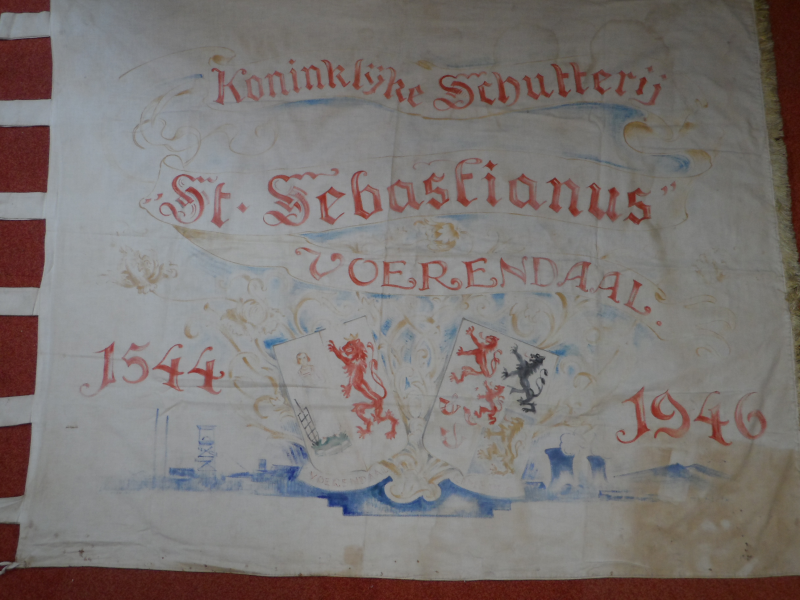 Koninklyke Schutterij
"St. Sebastianus"
VOERENDAAL.
1544
1946